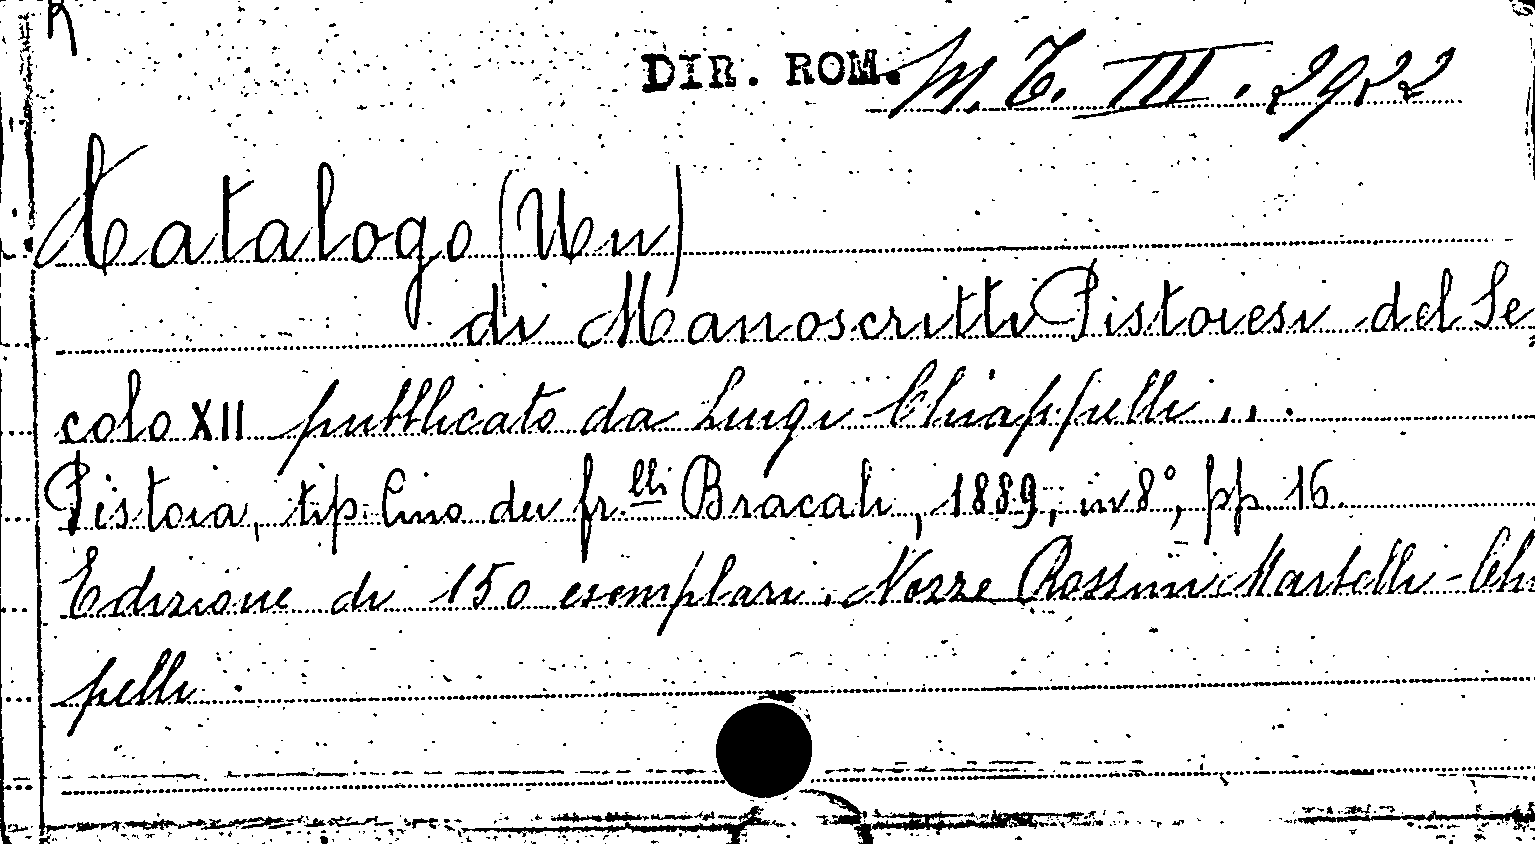 DIR. ROM. M. T. III. 2922
Catalogo (Un)
di Manoscritti Pistoiesi del Se=
colo XII pubblicato da Luigi Chiappelli...
Pistoia, tip. Cino dei fr.lli Bracali, 1889, in 8°, pp. 16.
Edizione di 150 esemplari. Nozze Rossini Martelli-Chi
pelli.